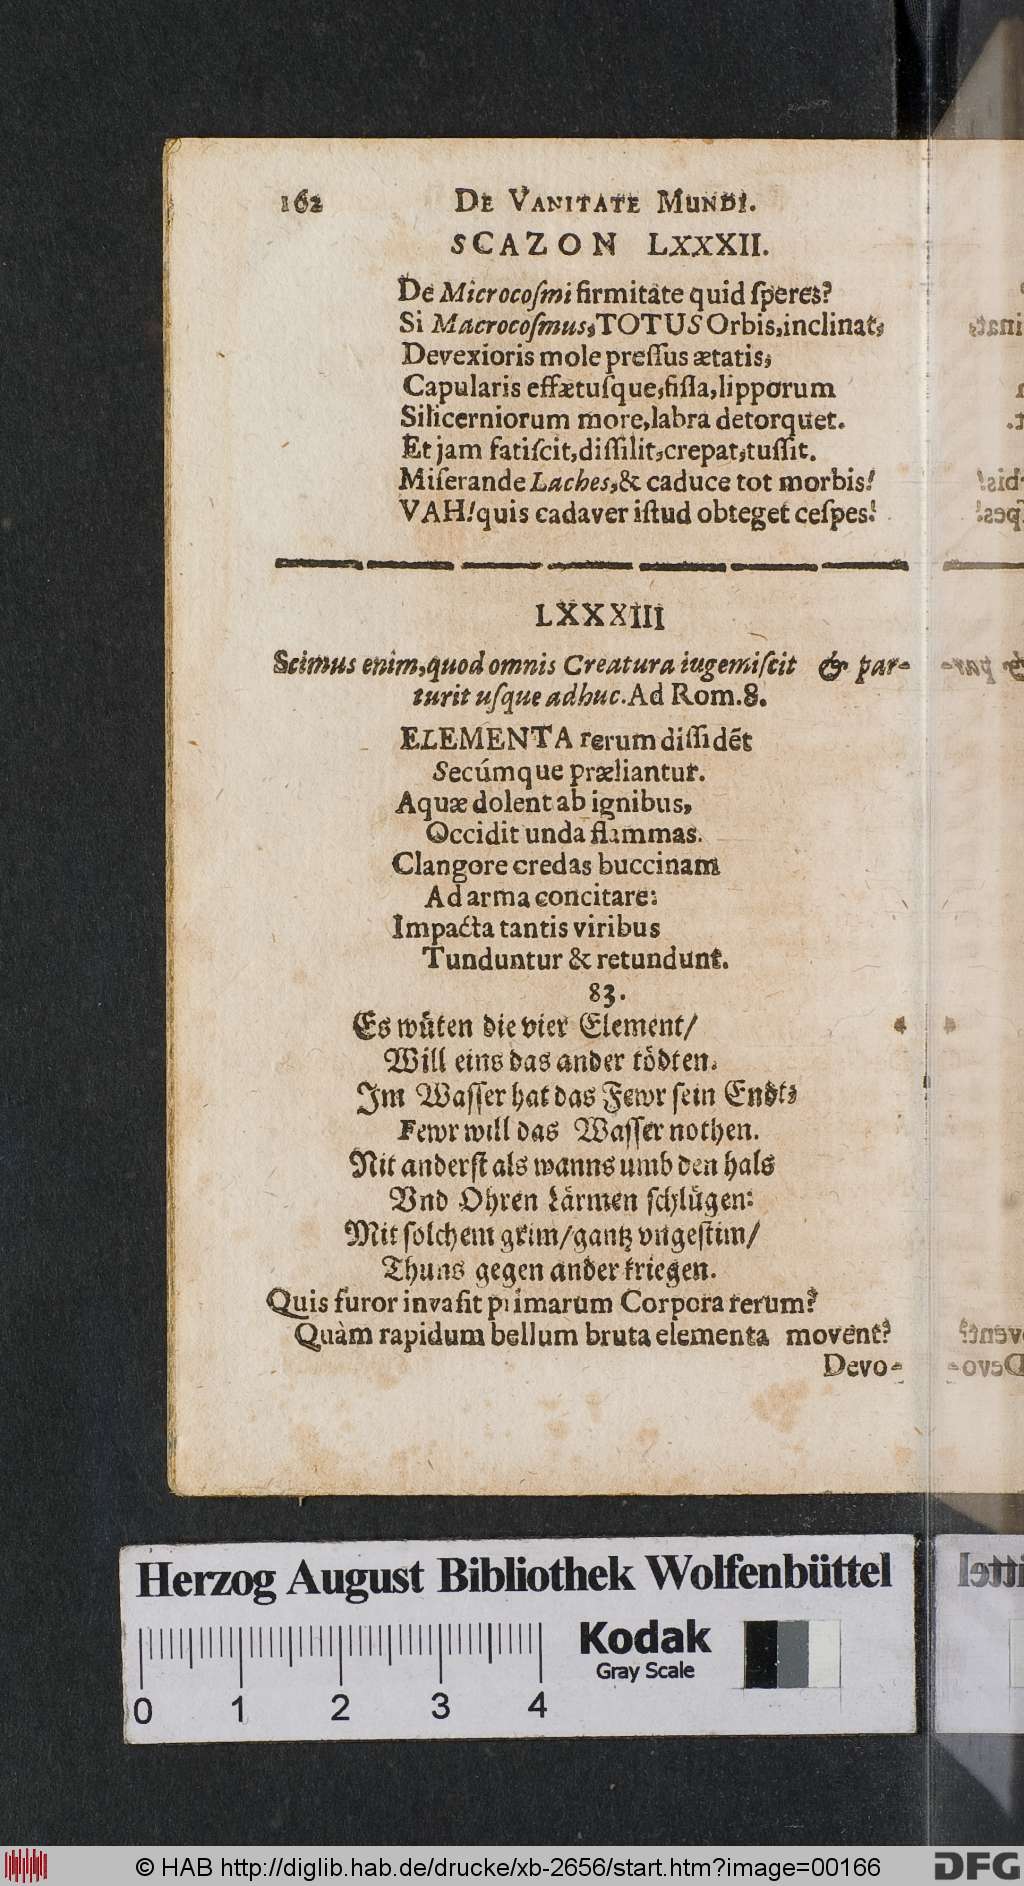 162 DE VANITATE MUNDI.
SCAZON LXXXII.
De Microcoſmi firmitate quid ſperes?
Si Macrocoſmus, TOTUS Orbis, inclinat,
Devexioris mole preſſus ætatis,
Capularis effætuſque, fiſſa, lipporum
Silicerniorum more, labra detorquet.
Et jam fatiſcit, diſſilit, crepat, tuſſit.
Miſerande Laches, & caduce tot morbis!
VAH! quis cadaver iſtud obteget ceſpes!
LXXXIII
Scimus enim, quod omnis Creatura iugemiſcit & par-
turit uſque adhuc. Ad Rom. 8.
ELEMENTA rerum diſſidēt
Secúmque præliantur.
Aquæ dolent ab ignibus,
Occidit unda flammas.
Clangore credas buccinam
Ad arma concitare:
Impacta tantis viribus
Tunduntur & retundunt.
83.
Es wüten die vier Element/
Will eins das ander tödten.
Im Waſſer hat das Fewr ſein Endt;
Fewr will das Waſſer nothen.
Nit anderſt als wanns umb den hals
Vnd Ohren Lärmen ſchlügen:
Mit ſolchem grim/ gantz vngeſtim/
Thuns gegen ander kriegen.
Quis furor invaſit primarum Corpora rerum?
Quàm rapidum bellum bruta elementa movent?
Devo-
Herzog August Bibliothek Wolfenbüttel
Kodak
Gray Scale
0 1 2 3 4
© HAB http://diglib.hab.de/drucke/xb-2656/start.htm?image=00166
DFG